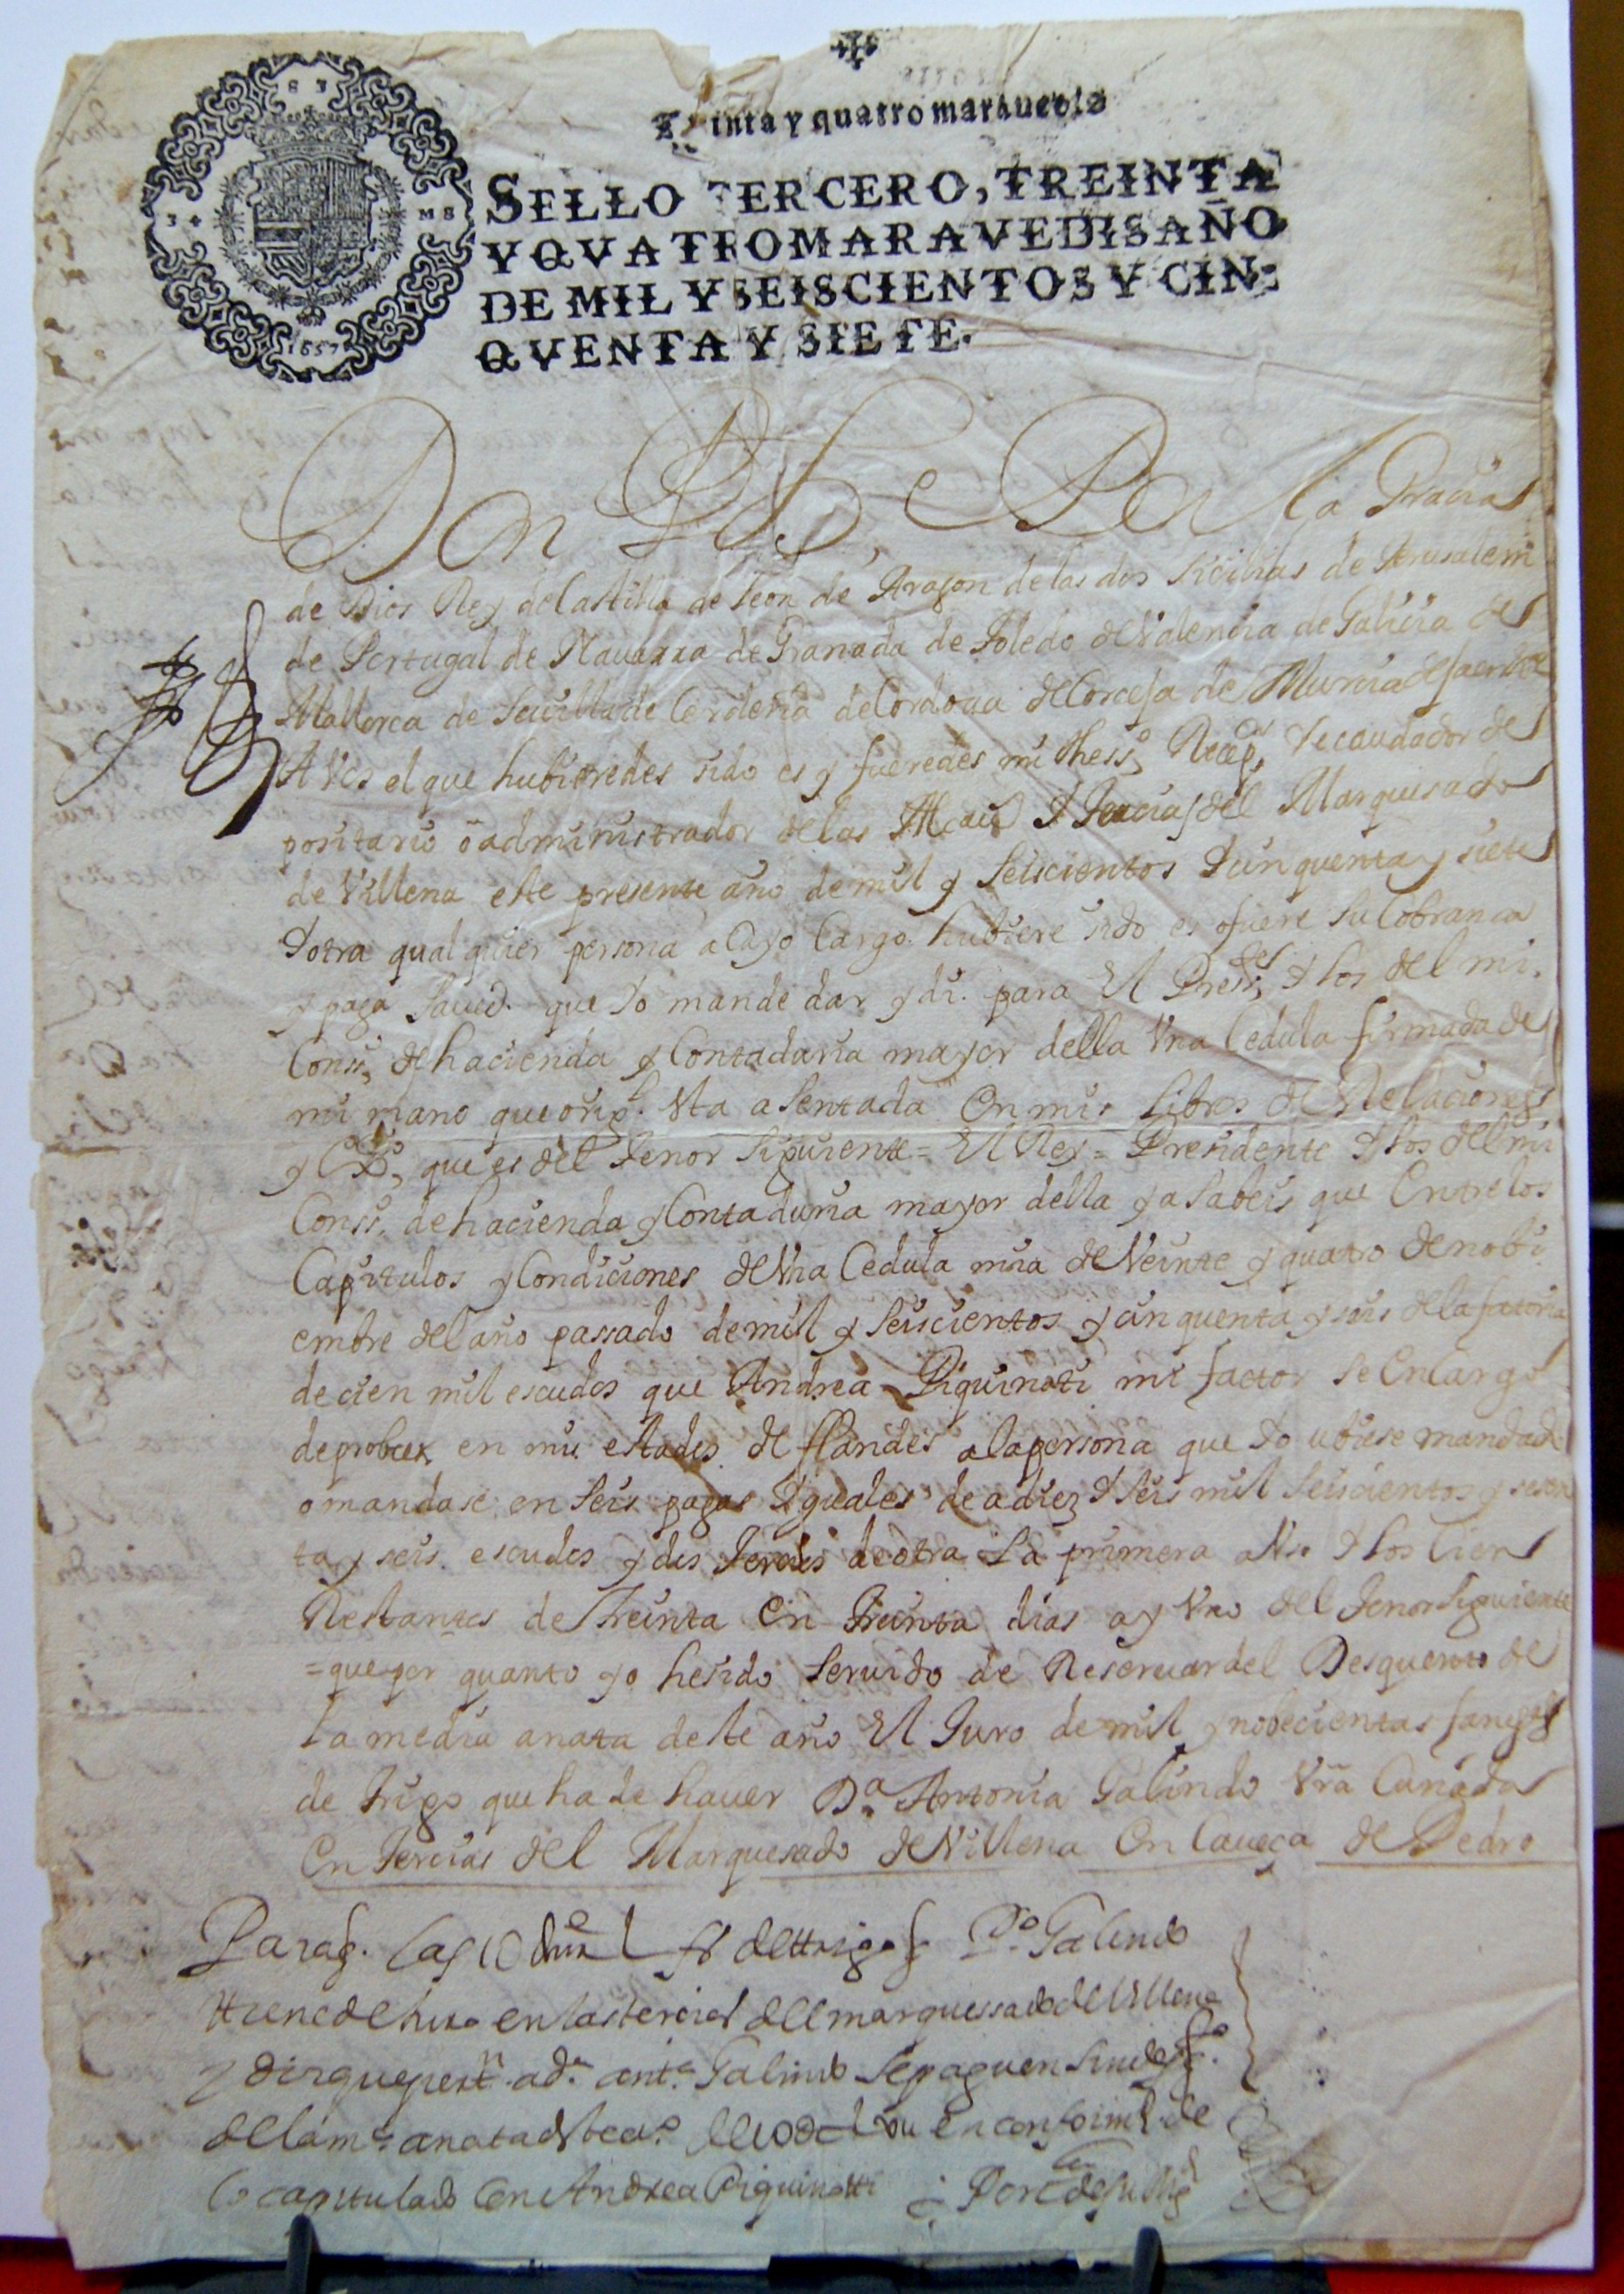 treinta y quatro marauedis
SELLO TERCERO, TREINTA
Y QVATROMARAVEDIS AÑO
DE MIL Y SEISCIENTOS Y CIN-
QVENTA Y SIETE.
1657
Don Ph, e Por la Gracia
de Dios Rey de Castilla de leon de Aragon de las dos Sicilias de Jerusalem
de Portugal de Nauarra de Granada de Toledo de Valencia de Galicia de
Mallorca de Seuilla de Cerdeña de Cordoua de Corcega de Murcia de Jaen &c
A Vos el que hubieredes sido es y fueredes mi thess,º Recep,or Recaudador de
positario o administrador de las Alcau,s Y Tercias del Marquesado
de Villena este presente año de mil y seiscientos Y cinquenta y siete
Y otra qualquier persona a cuyo cargo hubiere sido es o fuere su cobranca
y paga Saued. que Yo mande dar y di. para El Pressi,des Y los del mi.
Conss, de hacienda y Contaduria mayor della Vna Cedula firmada de
mi mano que orig.l sta asentada En mis libros de Relaciones
y que es del tenor siguiente = El Rey = Presidente Y los del mi
Conss. de hacienda y Contaduria mayor della ya sabeis que Entre los
Capitulos y Condiciones de Vna Cedula mia de Veinte y quatro de nobi
embre del año passado de mil y seiscientos y cinquenta y seis de la fatoria
de cien mil escudos que Andrea Piquinoti mi factor se Encargo
de probeer en mis estados de flandes a la persona que Yo ubiese mandado
o mandase en seis pagas Yguales de a diez Y seis mil seiscientos y sesen
ta y seis escudos y dos tercios de otra La primera a Vta Y los cien
Restantes de treinta en treinta dias ay Vno del tenor siguiente
= que por quanto yo he sido seruido de Reseruar del Desquento de
la media anata deste año El Juro de mil y nobecientas fanegas
de trigo que ha de hauer D.a Antonia Galindo Vra Cuñada
En tercias del Marquesado de Villena En Caueca de Pedro
Para q. las de ttrigo q P.º Galindo
ttiene de juro en las tercias del marquessado de Villena
y diz que pert.n a d.a ant.a Galindo se paguen sin des.to
de la m.a anata deste a.º de en conformd. de
lo capitulado con Andrea Piquinotti = Por C.la de su Mg.d